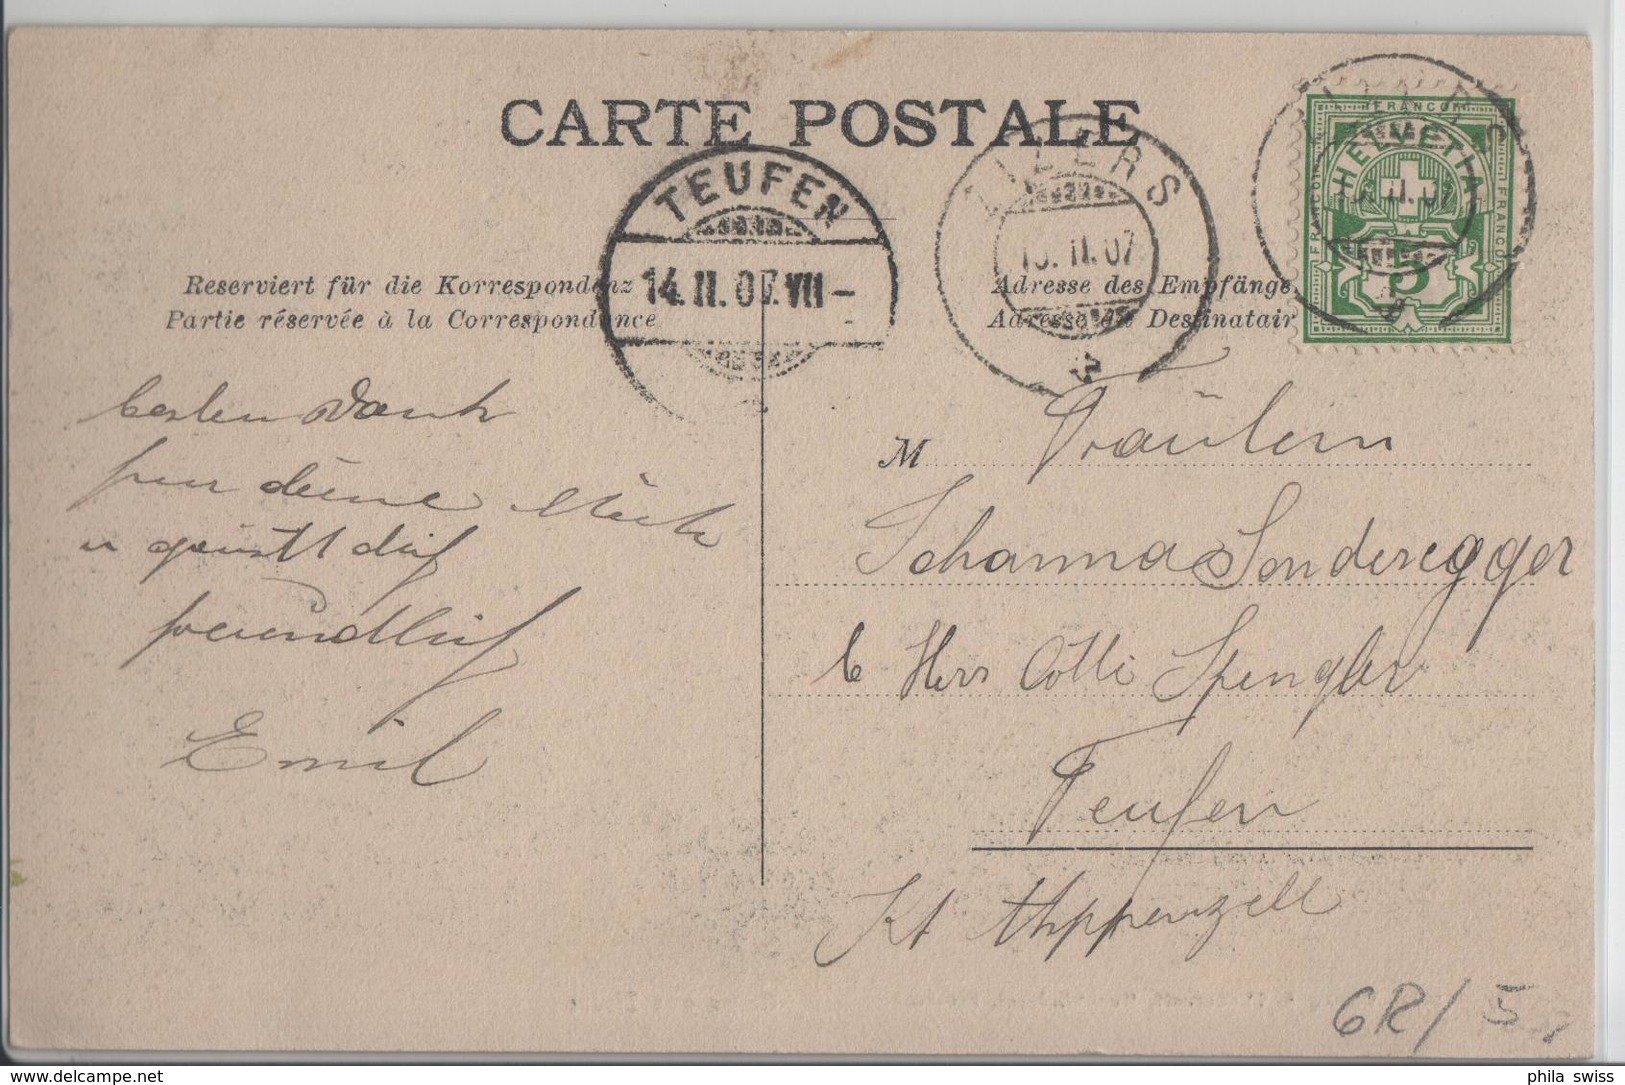 CARTE POSTALE
TEUFEN
14.II.07.VII-
ZIZERS
13.II.07
FRANCO
HELVETIA
II.07
FRANCO
FRANCO
5
Reserviert für die Korrespondenz
Partie réservée à la Correspondance
Adresse des Empfänge
Adresse du Destinatair
besten Dank
für deine
u grüsst dich
freundlich
Emil
M Fräulein
Johanna Sonderegger
b Herr Otti Spengler
Teufen
Kt Appenzell
GR/5.
phila swiss